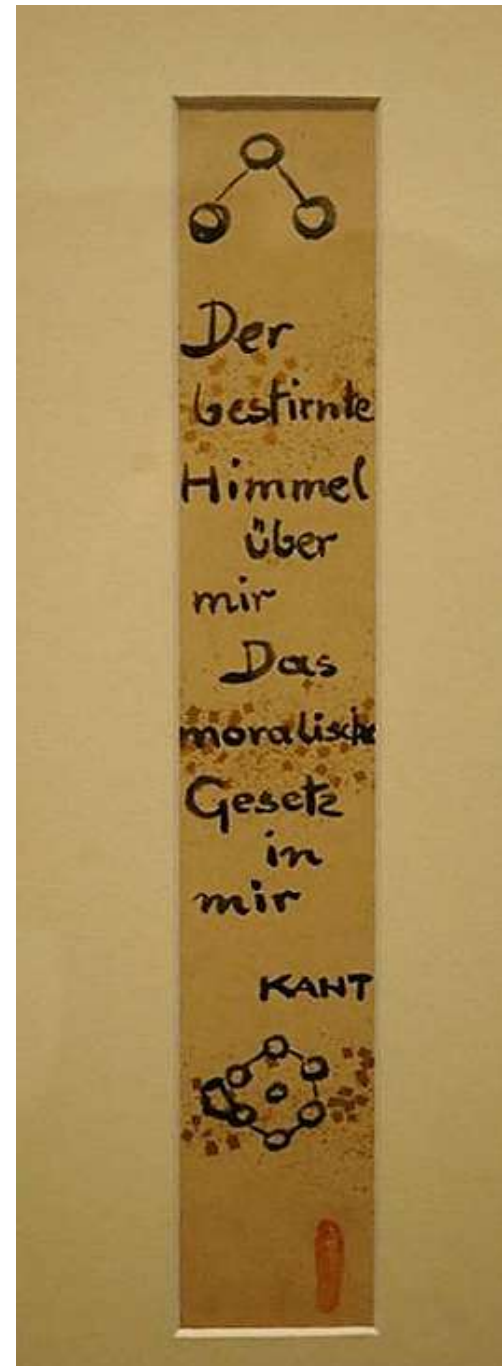 Der
bestirnte
Himmel
über
mir
Das
moralische
Gesetz
in
mir
KANT